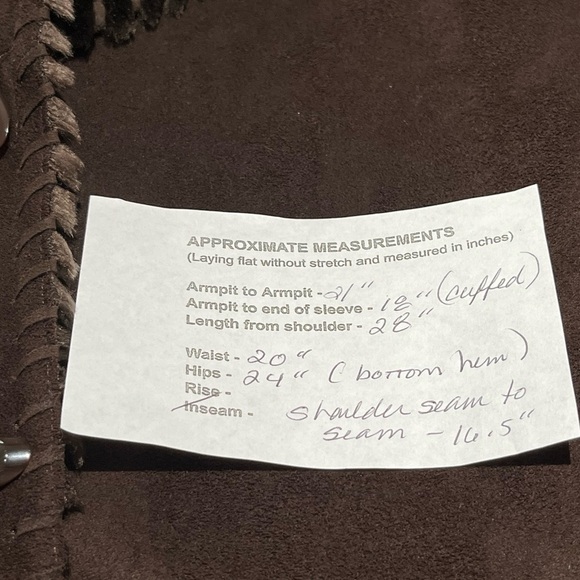 APPROXIMATE MEASUREMENTS
(Laying flat without stretch and measured in inches)
Armpit to Armpit - 21"
Armpit to end of sleeve - 18" (cuffed)
Length from shoulder - 28"
Waist - 20"
Hips - 24" (bottom hem)
Rise -
Inseam - shoulder seam to
seam - 16.5"